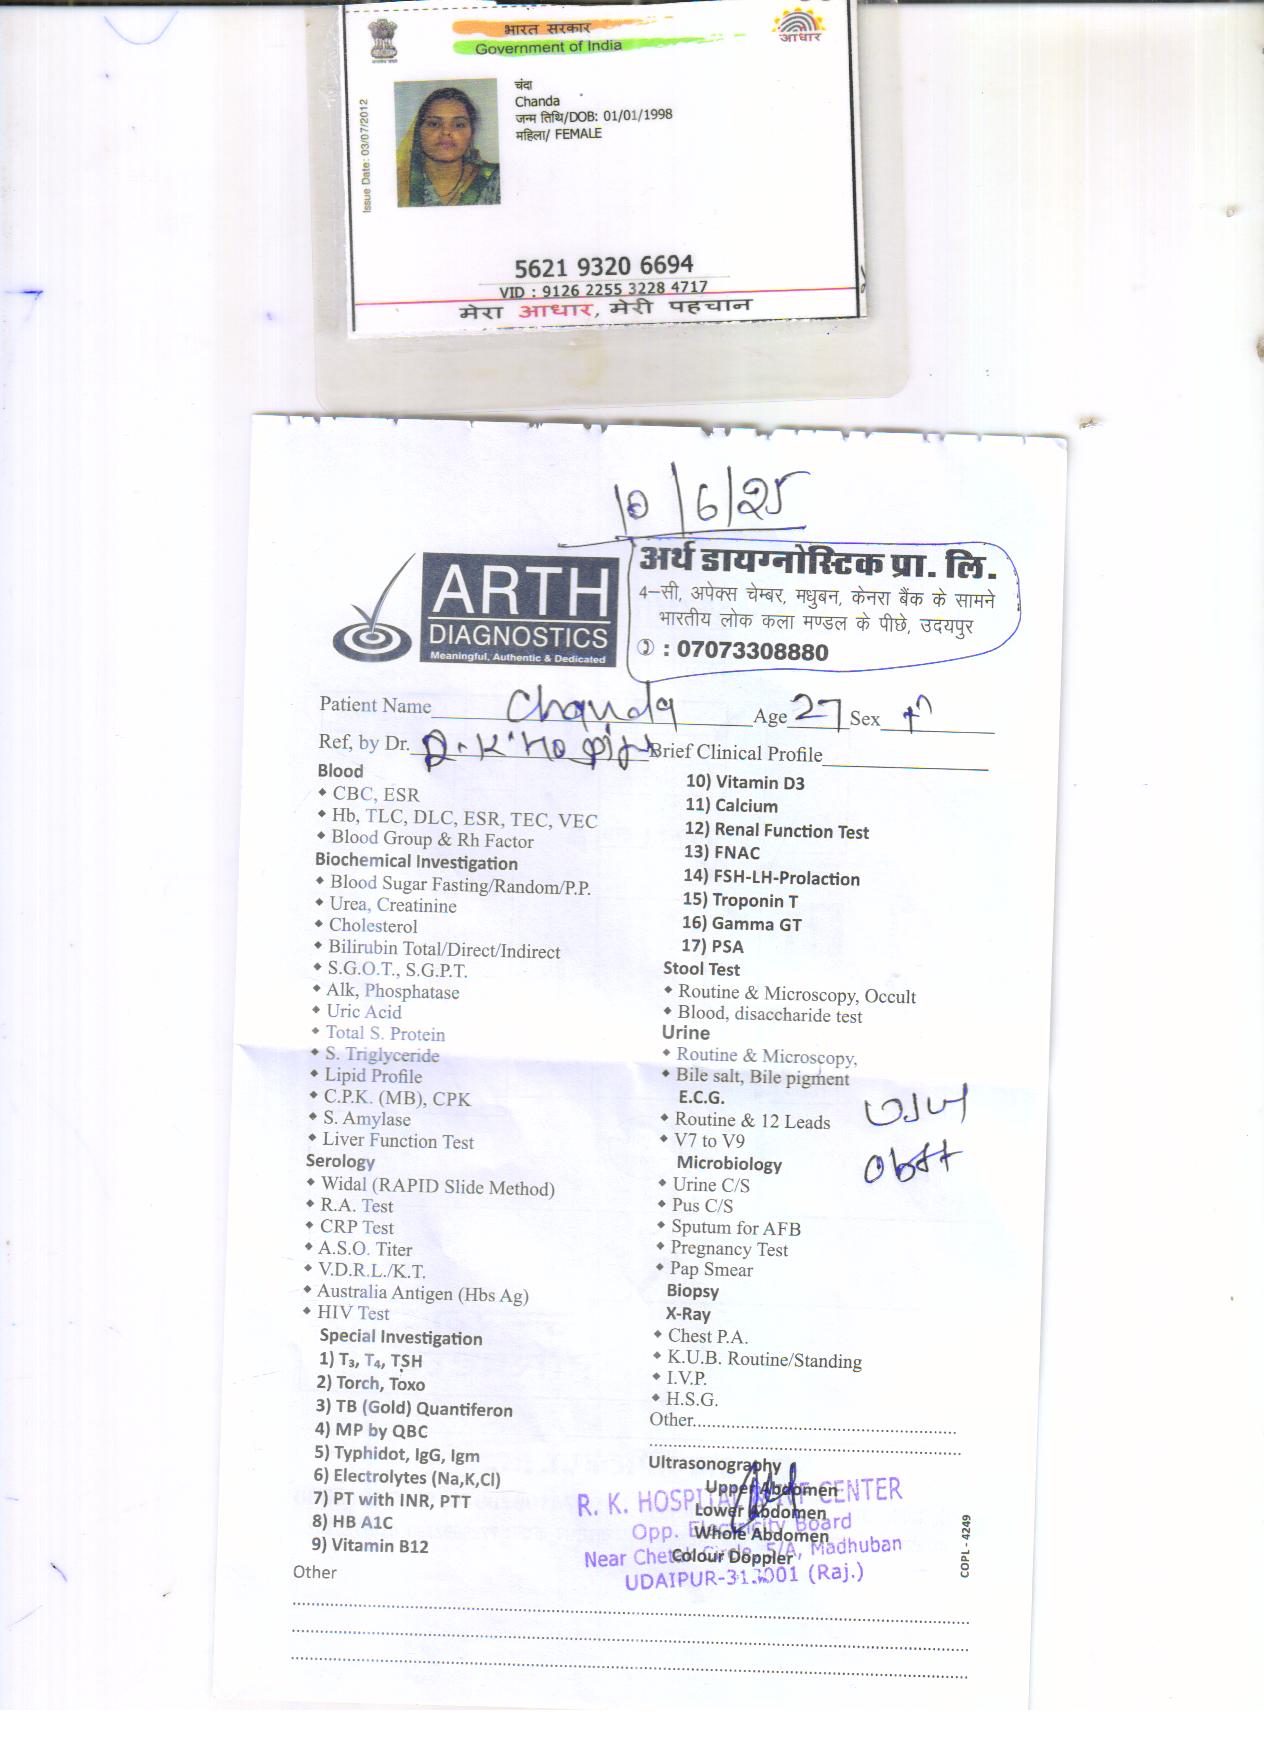 भारत सरकार
Government of India
आधार
Issue Date: 03/07/2012
चंदा
Chanda
जन्म तिथि/DOB: 01/01/1998
महिला/ FEMALE
5621 9320 6694
VID : 9126 2255 3228 4717
मेरा आधार, मेरी पहचान
10/6/25
ARTH
DIAGNOSTICS
Meaningful, Authentic & Dedicated
अर्थ डायग्नोस्टिक प्रा. लि.
4-सी, अपेक्स चेम्बर, मधुबन, केनरा बैंक के सामने
भारतीय लोक कला मण्डल के पीछे, उदयपुर
: 07073308880
Patient Name Chanda Age 27 Sex
Ref, by Dr. R.K. Hospital Brief Clinical Profile
Blood
CBC, ESR
Hb, TLC, DLC, ESR, TEC, VEC
Blood Group & Rh Factor
Biochemical Investigation
Blood Sugar Fasting/Random/P.P.
Urea, Creatinine
Cholesterol
Bilirubin Total/Direct/Indirect
S.G.O.T., S.G.P.T.
Alk, Phosphatase
Uric Acid
Total S. Protein
S. Triglyceride
Lipid Profile
C.P.K. (MB), CPK
S. Amylase
Liver Function Test
Serology
Widal (RAPID Slide Method)
R.A. Test
CRP Test
A.S.O. Titer
V.D.R.L./K.T.
Australia Antigen (Hbs Ag)
HIV Test
Special Investigation
1) T3, T4, TSH
2) Torch, Toxo
3) TB (Gold) Quantiferon
4) MP by QBC
5) Typhidot, IgG, Igm
6) Electrolytes (Na,K,Cl)
7) PT with INR, PTT
8) HB A1C
9) Vitamin B12
Other
10) Vitamin D3
11) Calcium
12) Renal Function Test
13) FNAC
14) FSH-LH-Prolaction
15) Troponin T
16) Gamma GT
17) PSA
Stool Test
Routine & Microscopy, Occult
Blood, disaccharide test
Urine
Routine & Microscopy,
Bile salt, Bile pigment
E.C.G.
Routine & 12 Leads
V7 to V9
Microbiology
Urine C/S
Pus C/S
Sputum for AFB
Pregnancy Test
Pap Smear
Biopsy
X-Ray
Chest P.A.
K.U.B. Routine/Standing
I.V.P.
H.S.G.
Other
Ultrasonography
Upper Abdomen
Lower Abdomen
Whole Abdomen
Colour Doppler
R. K. HOSPITAL & IVF CENTER
Opp. Electricity Board
Near Chetak Circle, 5/A, Madhuban
UDAIPUR-313001 (Raj.)
COPL - 4249